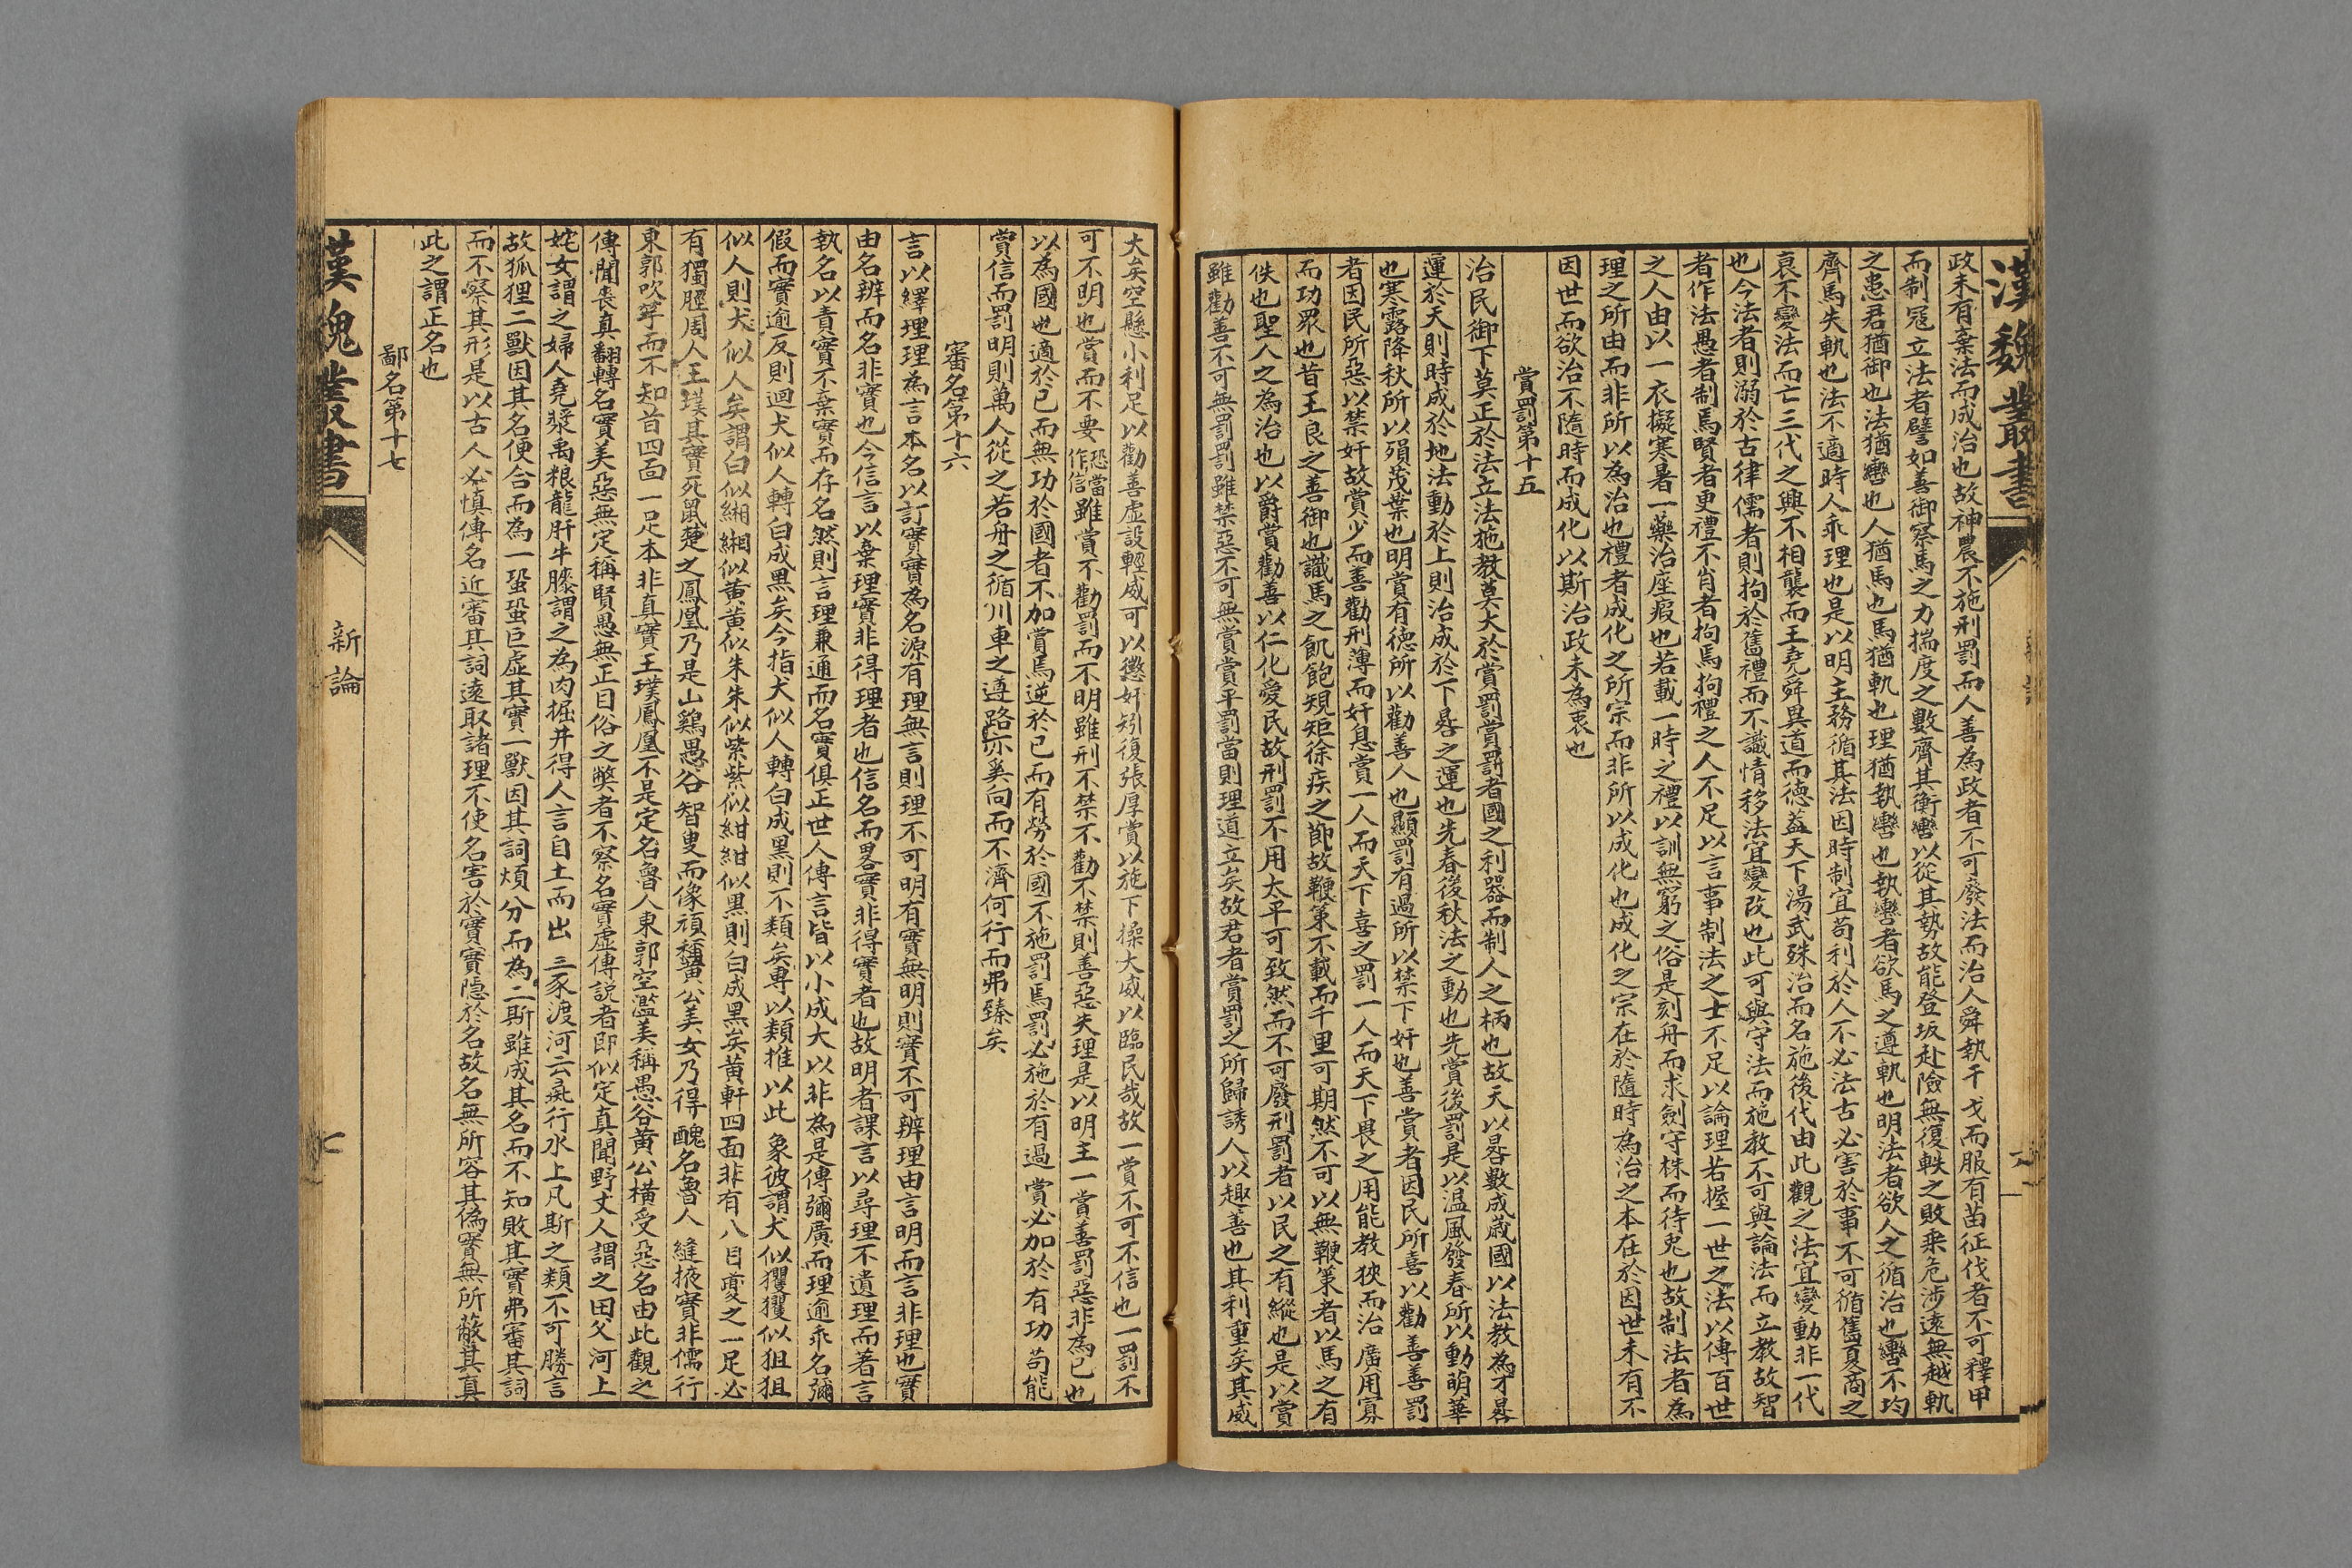 漢魏叢書
政未有棄法而成治也故神農不施刑罰而人善為政者不可廢法而治人舜執干戈而服有苗征伐者不可釋甲
而制寇立法者譬如善御察馬之力揣度之數齊其衡轡以從其勢故能登坂赴險無復軼之敗乘危涉遠無越軌
之患君猶御也法猶轡也人猶馬也馬猶軌也理猶執轡也執轡者欲馬之遵軌也明法者欲人之循治也轡不均
齊馬失軌也法不適時人乖理也是以明主務循其法因時制宜苟利於人不必法古必害於事不可循舊夏商之
衰不變法而亡三代之興不相襲而王堯舜異道而德蓋天下湯武殊治而名施後代由此觀之法宜變動非一代
也今法者則溺於古律儒者則拘於舊禮而不識情移法宜變改也此可與守法而施教不可與論法而立教故智
者作法愚者制焉賢者更禮不肖者拘焉拘禮之人不足以言事制法之士不足以論理若握一世之法以傳百世
之人由以一衣擬寒暑一藥治座瘕也若載一時之禮以訓無窮之俗是刻舟而求劍守株而待兔也故制法者為
理之所由而非所以為治也禮者成化之所宗而非所以成化也成化之宗在於隨時為治之本在於因世未有不
因世而欲治不隨時而成化以斯治政未為衷也
賞罰第十五
治民御下莫正於法立法施教莫大於賞罰賞罰者國之利器而制人之柄也故天以晷數成歲國以法教為才晷
運於天則時成於地法動於上則治成於下晷之運也先春後秋法之動也先賞後罰是以溫風發春所以動萌華
也寒露降秋所以殞茂葉也明賞有德所以勸善人也顯罰有過所以禁下奸也善賞者因民所喜以勸善善罰
者因民所惡以禁奸故賞少而善勸刑薄而奸息賞一人而天下喜之罰一人而天下畏之用能教狹而治廣用寡
而功眾也昔王良之善御也識馬之飢飽規矩徐疾之節故鞭策不載而千里可期然不可以無鞭策者以馬之有
佚也聖人之為治也以爵賞勸善以仁化愛民故刑罰不用太平可致然而不可廢刑罰者以民之有縱也是以賞
雖勸善不可無罰罰雖禁惡不可無賞賞平罰當則理道立矣故君者賞罰之所歸誘人以趣善也其利重矣其威
大矣空懸小利足以勸善虛設輕威可以懲奸矧復張厚賞以施下操大威以臨民哉故一賞不可不信也一罰不
可不明也賞而不要恐當作信雖賞不勸罰而不明雖刑不禁不勸不禁則善惡失理是以明主一賞善罰惡非為己也
以為國也適於己而無功於國者不加賞焉逆於己而有勞於國不施罰焉罰必施於有過賞必加於有功苟能
賞信而罰明則萬人從之若舟之循川車之遵路亦奚向而不濟何行而弗臻矣
審名第十六
言以繹理理為言本名以訂實實為名源有理無言則理不可明有實無明則實不可辨理由言明而言非理也實
由名辨而名非實也今信言以棄理實非得理者也信名而畧實非得實者也故明者課言以尋理不遺理而著言
執名以責實不棄實而存名然則言理兼通而名實俱正世人傳言皆以小成大以非為是傳彌廣而理逾乖名彌
假而實逾反則迴犬似人轉白成黑矣今指犬似人轉白成黑則不類矣專以類推以此象彼謂犬似玃玃似狙狙
似人則犬似人矣謂白似緗緗似黃黃似朱朱似紫紫似紺紺似黑則白成黑矣黃軒四面非有八目夔之一足必
有獨脛周人玉璞其實死鼠楚之鳳凰乃是山鷄愚谷智叟而像頑稱黃公美女乃得醜名魯人縫掖實非儒行
東郭吹竽而不知音四面一足本非真實玉璞鳳凰不是定名魯人東郭空濫美稱愚谷黃公橫受惡名由此觀之
傳聞喪真翻轉名實美惡無定稱賢愚無正目俗之弊者不察名實虛傳說者即似定真聞野丈人謂之田父河上
姹女謂之婦人堯漿禹粮龍肝牛膝謂之為肉掘井得人言自土而出三豕渡河云彘行水上凡斯之類不可勝言
故狐狸二獸因其名便合而為一蛩蛩巨虛其實一獸因其詞煩分而為二斯雖成其名而不知敗其實弗審其詞
而不察其形是以古人必慎傳名近審其詞遠取諸理不使名害於實實隱於名故名無所容其偽實無所蔽其真
此之謂正名也
鄙名第十七
漢魏叢書
新論
七